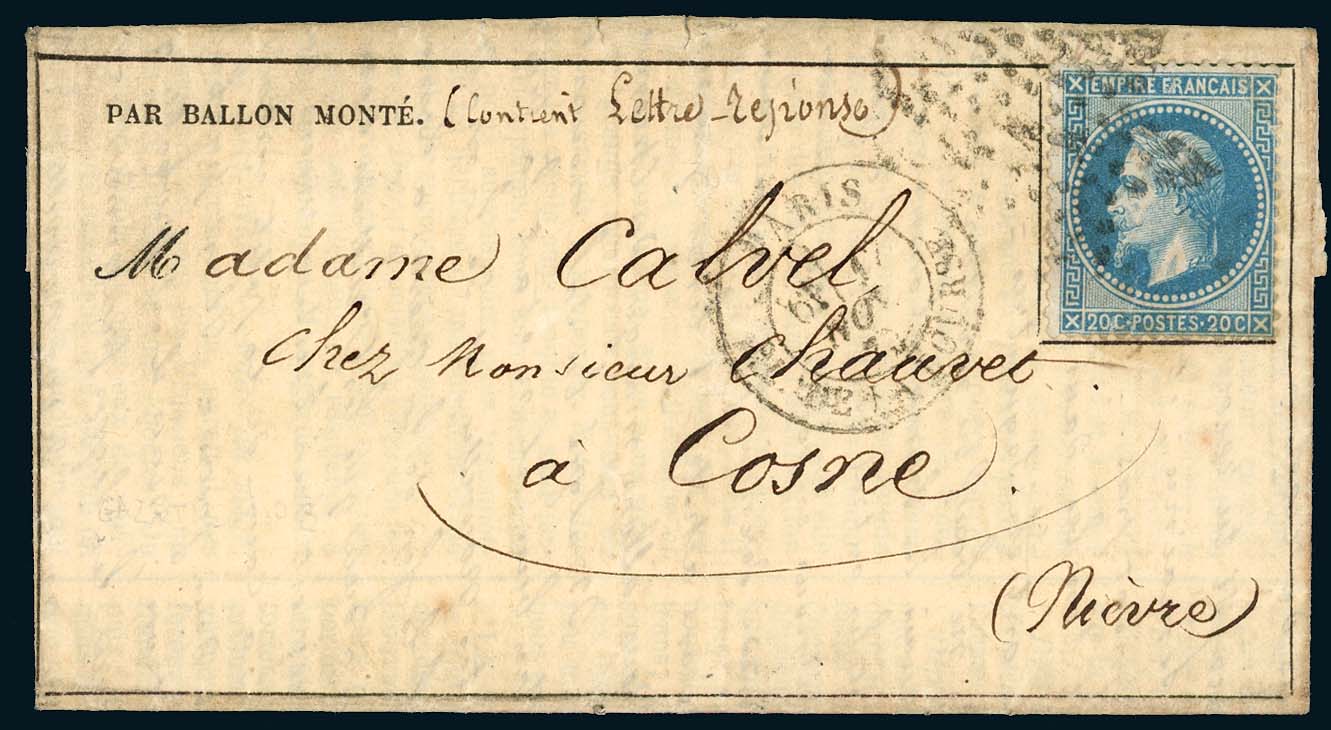 PAR BALLON MONTÉ. (Contient Lettre-réponse)
EMPIRE FRANÇAIS
20 C·POSTES·20 C
PARIS
PL. DE LA BOURSE
Madame Calvel,
chez Monsieur Chauvet
à Cosne.
(Nièvre)